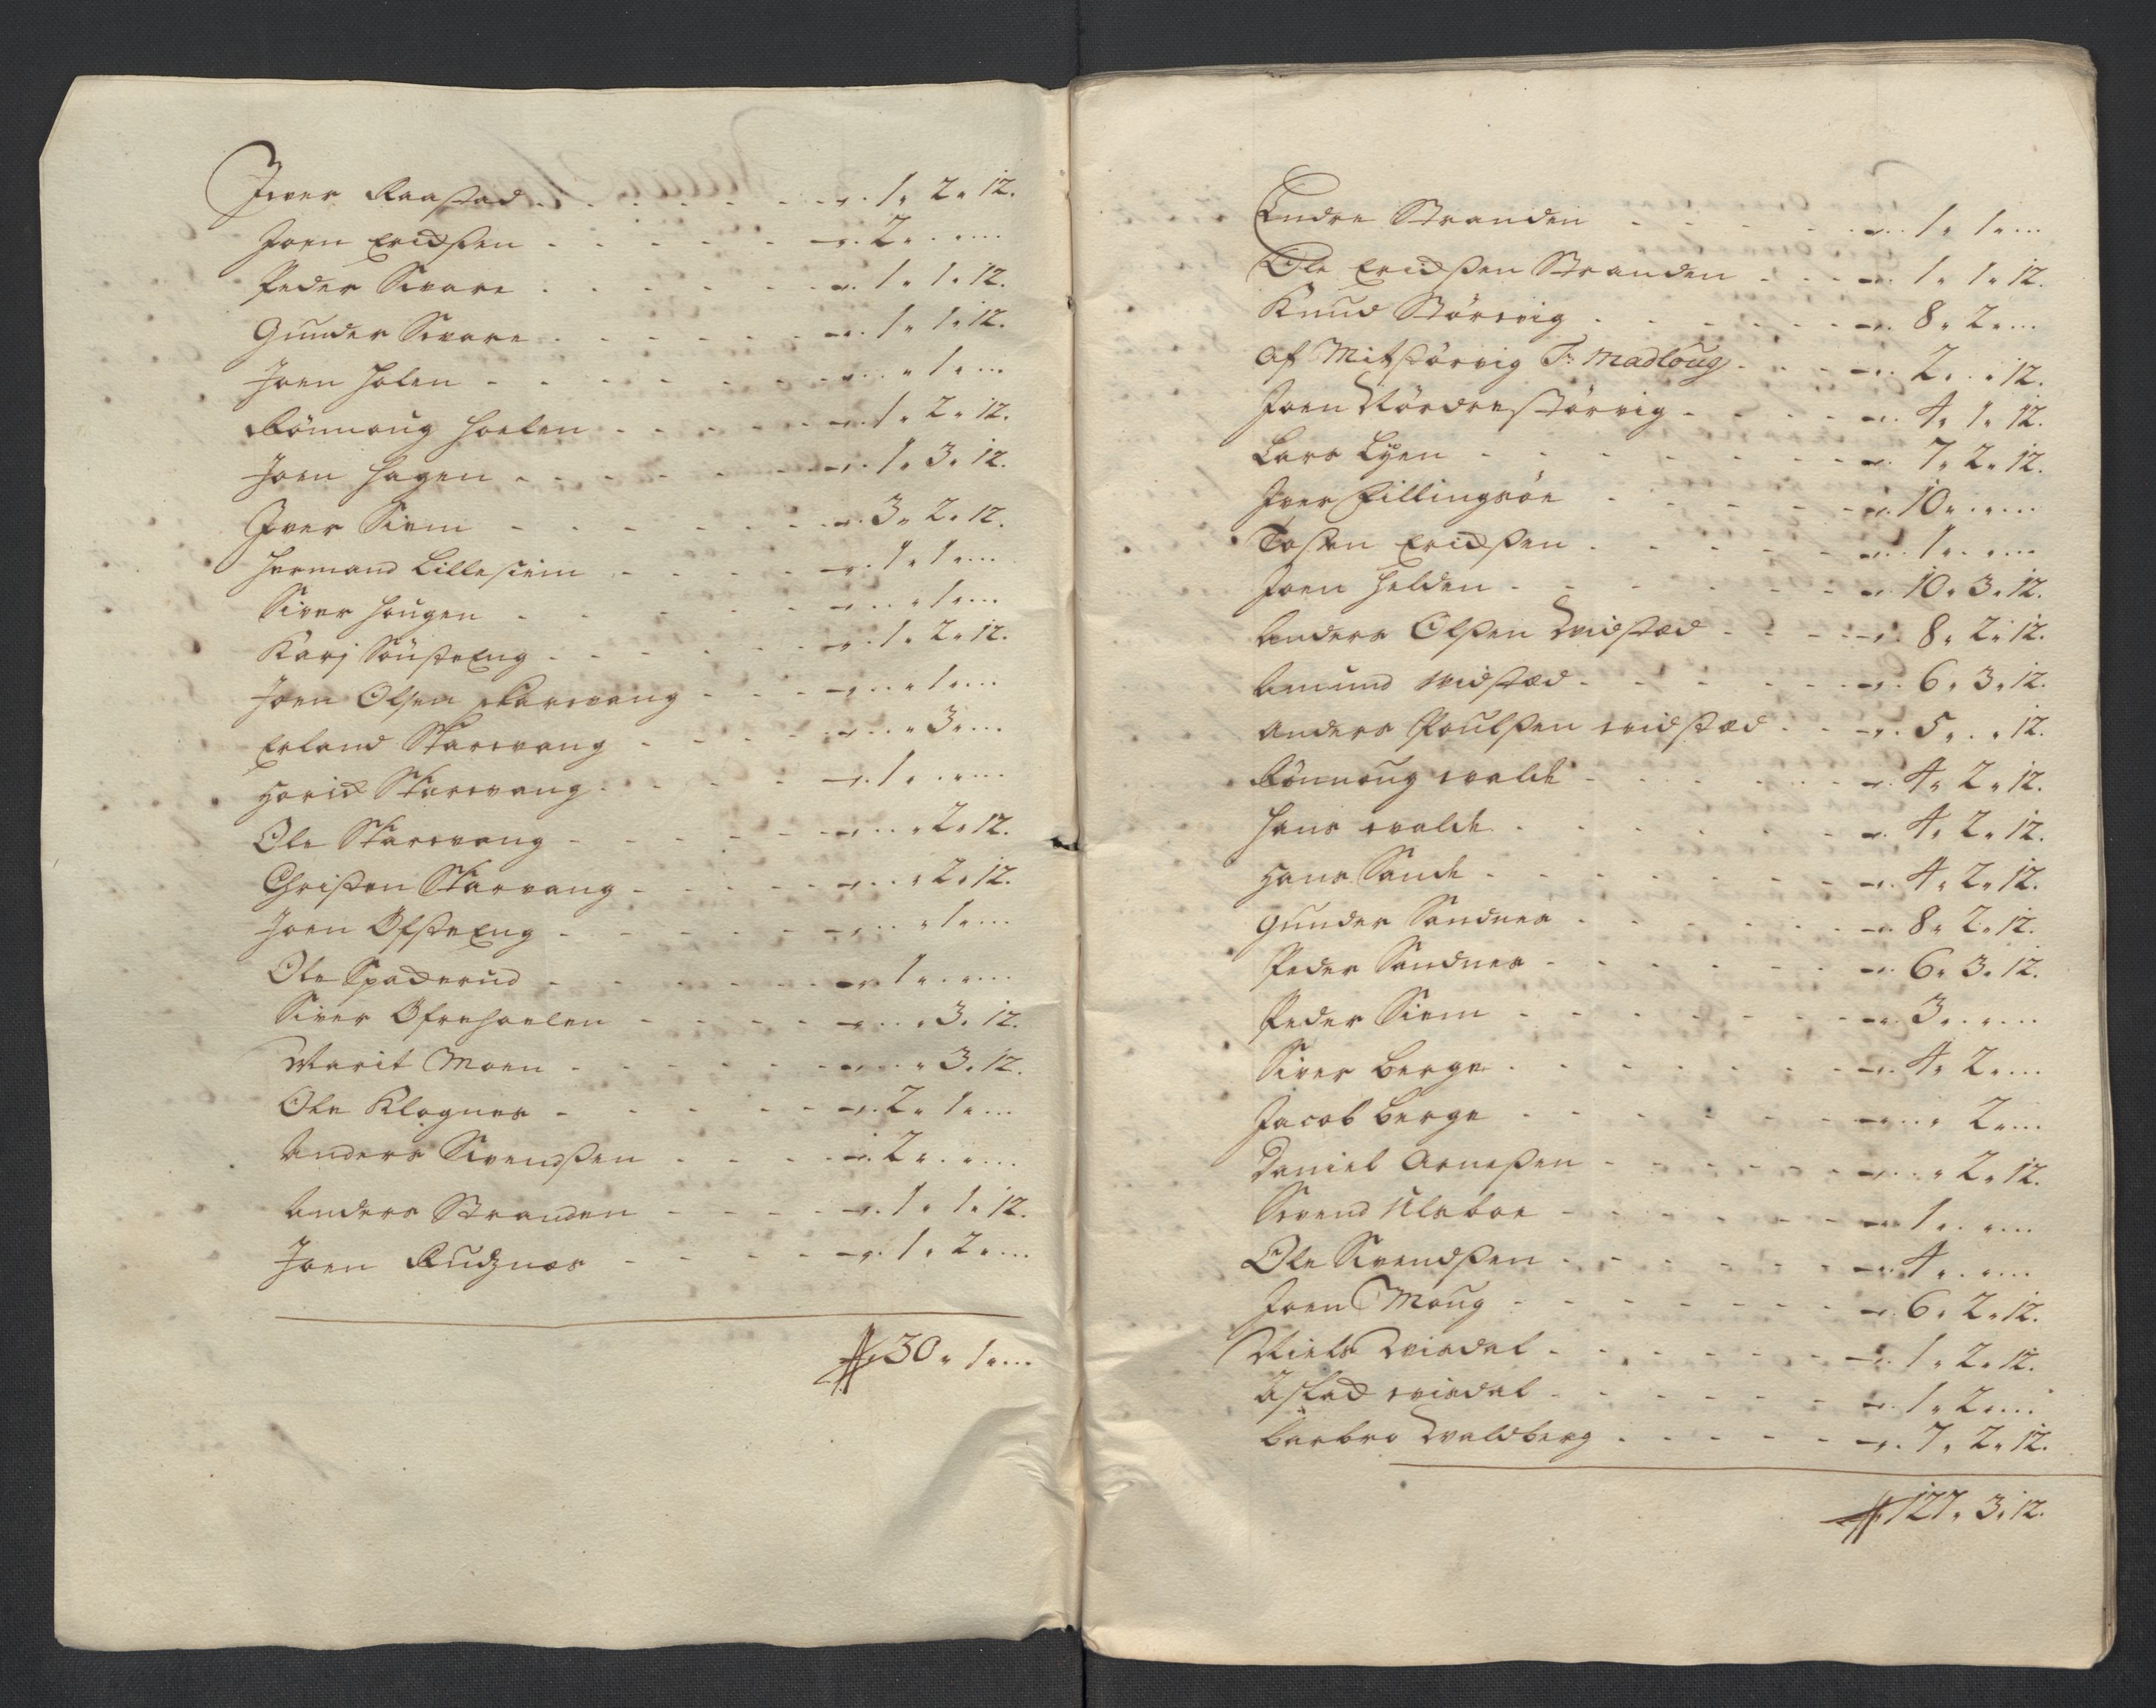 Iver Raastad - - - - - - 1 " 2 " 12.
Joen Erichsen - - - - - 2 " . " ...
Peder Svare - - - - - 1 " 1 " 12.
Gunder Svare - - - - - 1 " 1 " 12.
Joen Holen - - - - - - " 1 " ...
Rönnoug Hoelen - - - - 1 " 2 " 12.
Joen Hagen - - - - - - 1 " 3 " 12.
Iver Siem - - - - - - 3 " 2 " 12.
Hermand Lillesiem - - - - 1 " 1 " ...
Siver Hougen - - - - - " 1 " ...
Karj - - - - - 1 " 2 " 12.
Joen Olsen Starvang - - - " 1 " ...
Erland Starvang - - - - " 3 " ...
Starvang - - - - 1 " . " ...
Ole Starvang - - - - - " 2 " 12.
Christen Starvang - - - - " 2 " 12.
Joen Öfsteeng - - - - - " 1 " ...
Ole Spaderud - - - - - 1 " . " ...
Siver Öfrehoelen - - - - " 3 " 12.
Marit Moen - - - - - " 3 " 12.
Ole Klognes - - - - - 2 " 1 " ...
Anders Svendsen - - - - 2 " . " ...
Anders Stranden - - - - 1 " 1 " 12.
Joen Rudznæs - - - - 1 " 2 " ...
30 " 1 " ...
Endre Stranden - - - - - 1 " 1 " ...
Ole Erichsen Stranden - - - 1 " 1 " 12.
Knud Störvig - - - - - 8 " 2 " ...
Af Mitstörvig T: Madloug - - - 2 " . " 12.
Joen Nördrestörvig - - - - 4 " 1 " 12.
Lars Lyen - - - - - - 7 " 2 " 12.
Iver Fillingsöe - - - - - 10 " . " ...
Tosten Erichsen - - - - - 1 " . " ...
Joen Helden - - - - - - 10 " 3 " 12.
Anders Olsen Vidstæd - - - 8 " 2 " 12.
Amund Vidstæd - - - - - 6 " 3 " 12.
Anders Poulsen Vidstæd - - 5 " . " 12.
Rönnoug Valde - - - - - 4 " 2 " 12.
Hans Valde - - - - - - 4 " 2 " 12.
Hans Sande - - - - - - 4 " 2 " 12.
Gunder Sandnes - - - - - 8 " 2 " 12.
Peder Sandnes - - - - - 6 " 3 " 12.
Peder Siem - - - - - - 3 " . " ...
Siver Berge - - - - - - 4 " 2 " ...
Jacob Berge - - - - - - " 2 " ...
Daniel Arnesen - - - - - " 2 " 12.
Svend Ulsboe - - - - - 1 " . " ...
Ole Svendsen - - - - - 4 " . " ...
Joen Moug - - - - - - 6 " 2 " 12.
Niels Viedal - - - - - 1 " 2 " 12.
Aslach Viedal - - - - - 1 " 2 " ...
Barbro Valdberg - - - - - 7 " 2 " 12.
127 " 3 " 12.